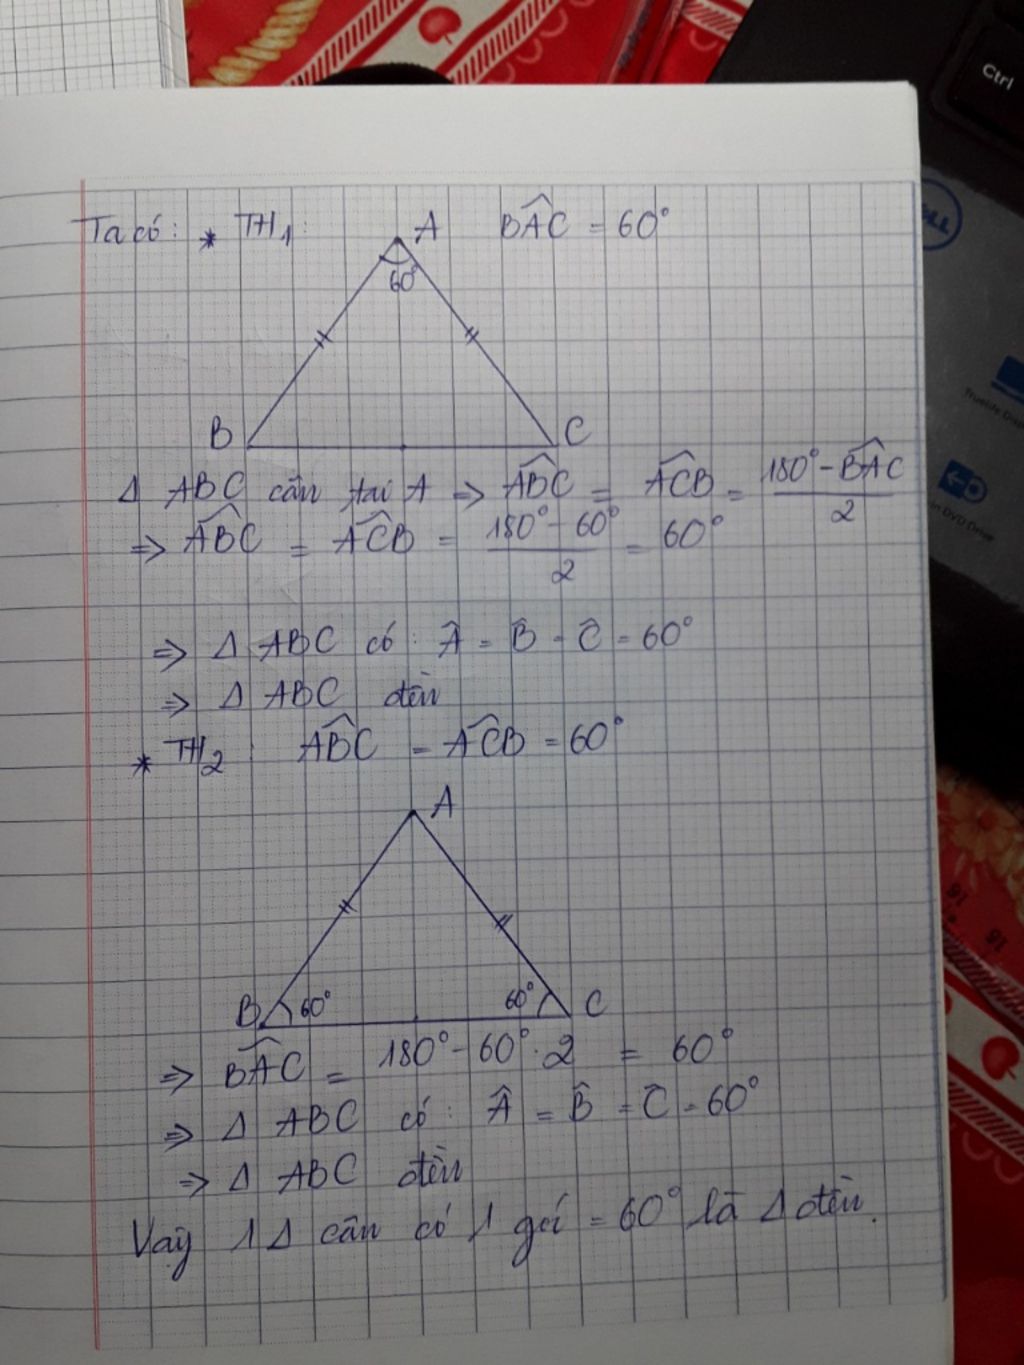 Ctrl
DELL
Ta có: * TH1: A $\widehat{BAC}$ = 60°
60°
B C
Δ ABC cân tại A => $\widehat{ABC}$ = $\widehat{ACB}$ = $\frac{180° - \widehat{BAC}}{2}$
=> $\widehat{ABC}$ = $\widehat{ACB}$ = $\frac{180° - 60°}{2}$ = 60°
=> Δ ABC có: $\widehat{A}$ = $\widehat{B}$ = $\widehat{C}$ = 60°
=> Δ ABC đều
* TH2: $\widehat{ABC}$ = $\widehat{ACB}$ = 60°
A
B 60° 60° C
=> $\widehat{BAC}$ = 180° - 60° . 2 = 60°
=> Δ ABC có: $\widehat{A}$ = $\widehat{B}$ = $\widehat{C}$ = 60°
=> Δ ABC đều
Vậy 1 Δ cân có 1 góc = 60° là Δ đều.